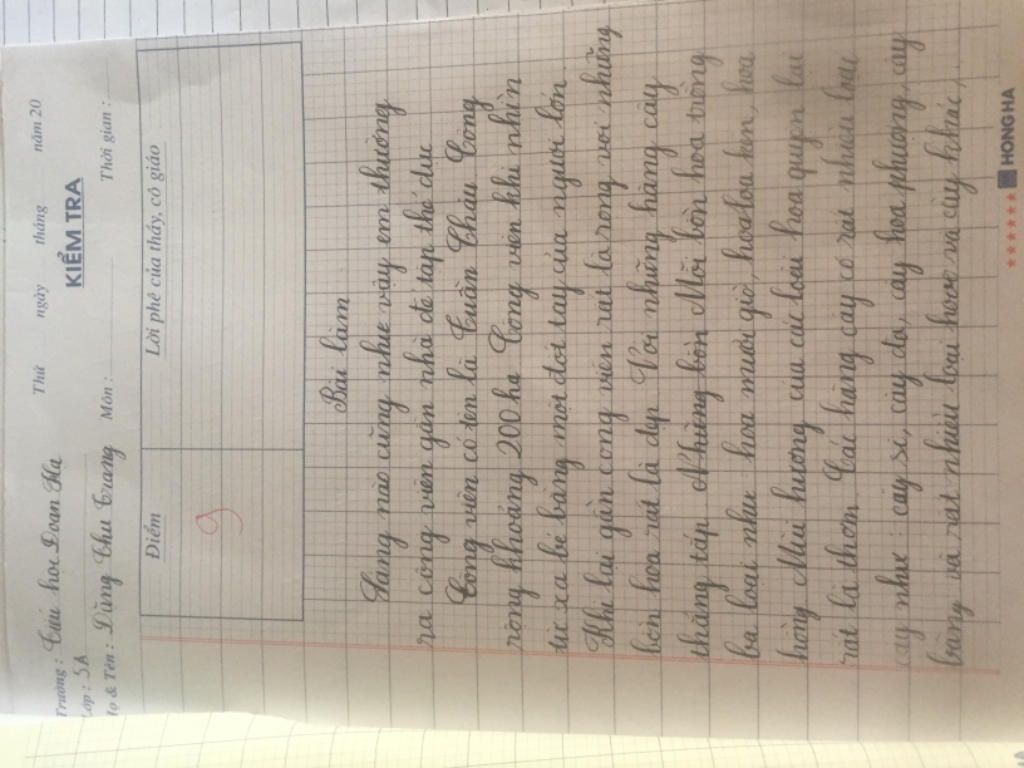 Thứ ngày tháng năm 20
KIỂM TRA
Trường : Tiểu học Đoan Hạ
Lớp : 5A
Họ & Tên : Dùng Thu Trang Môn : Thời gian :
Điểm Lời phê của thầy, cô giáo
9
Bài làm
Sáng nào cũng như vậy em thường
ra công viên gần nhà để tập thể dục
Công viên có tên là Tuần Châu Công
rông khoảng 200 ha Công viên khi nhìn
từ xa bé bằng một đốt tay của người lớn
Khi lại gần công viên rất là rộng với những
bồn hoa rất là đẹp Với những hàng cây
thẳng tắp Những bồn Mỗi bồn hoa trồng
ba loại như hoa mười giờ, hoa loa kèn, hoa
hồng Mùi hương của các loài hoa quyện lại
rất là thơm Các hàng cây có rất nhiều loại
cây như : cây si, cây đa, cây hoa phượng, cây
bàng và rất nhiều loại hoa và cây khác,
HONG HA